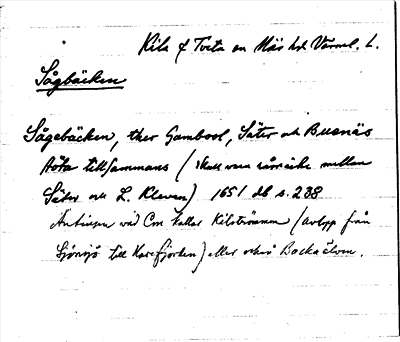 Kila f Tveta en Näs hd Värml. L.
Sågbäcken
Sågebäcken, ther Gambool, Säter och Buanäs
röta tillsammans (skall vara råmärke mellan
Säter och L. Kleven) 1651 db s. 238
Antingen vad Cm kallar Kilströmmen (avlopp från
Sjönsjö till Harefjorden) eller också Backa älven.